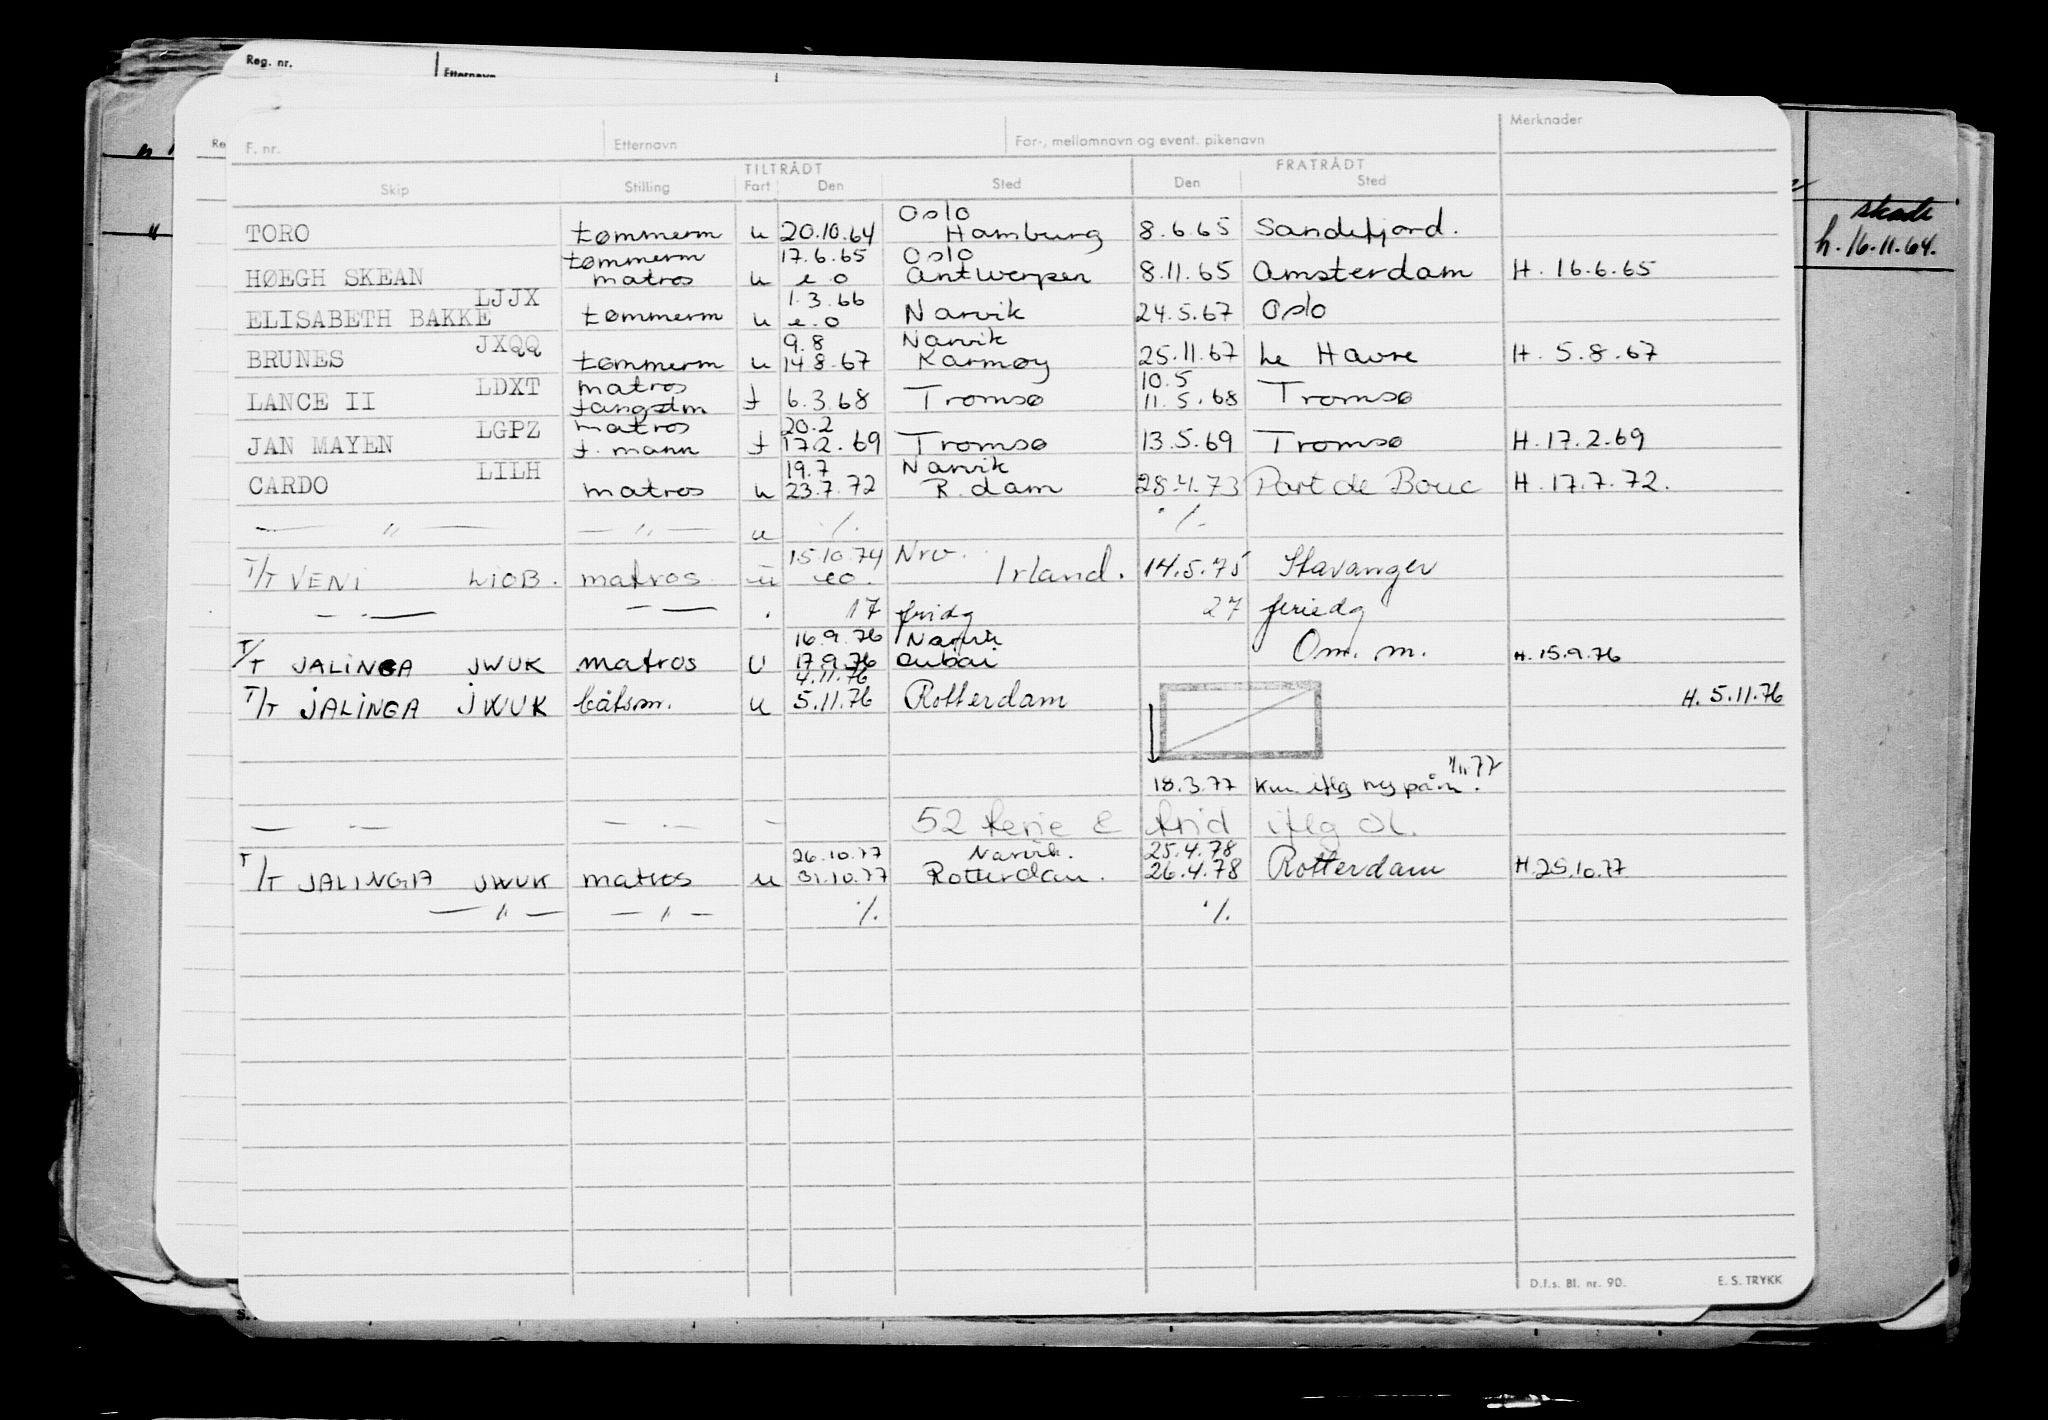 Reg. nr. Etternavn
F. nr. Etternavn For-, mellomnavn og event. pikenavn Merknader
TILTRÅDT FRATRÅDT
Skip Stilling Fart Den Sted Den Sted
skade
h. 16.11.64.
Oslo
TORO tømmerm u 20.10.64 Hamburg 8.6.65 Sandefjord.
tømmerm 17.6.65 Oslo
HØEGH SKEAN matros u e.o Antwerpen 8.11.65 Amsterdam H. 16.6.65
LJJX 1.3.66
ELISABETH BAKKE tømmerm u e.o Narvik 24.5.67 Oslo
JXQQ 9.8 Narvik
BRUNES tømmerm u 14 8.67 Karmøy 25.11.67 Le Havre H. 5.8.67
LDXT matros 10.5
LANCE II fangstm f 6.3.68 Tromsø 11.5.68 Tromsø
LGPZ matros 20.2
JAN MAYEN f. mann f 17.2.69 Tromsø 13.5.69 Tromsø H. 17.2.69
LILH 19.7 Narvik
CARDO matros u 23.7.72 R.dam 28.4.73 Port de Bouc H. 17.7.72.
— " — — " — u ./. ./.
15.10.74 Nrv.
T/T VENI LIOB. matros u eo. Irland. 14.5.75 Stavanger
— . — — — . 17 fridg 27 feriedg
16.9.76 Narvik
T/T JALINGA JWUK matros U 17.9.76 Dubai Om. m. H. 15.9.76
4.11.76
T/T JALINGA JWUK båtsm. u 5.11.76 Rotterdam H. 5.11.76
1/11 77
18.3.77 Kun iflg ny påm.
— . — — . — — 52 ferie & frid iflg OL.
26.10.77 Narvik. 25.4.78
T/T JALINGA JWUK matros u 31.10.77 Rotterdam. 26.4.78 Rotterdam H. 25.10.77
— " — — " — ./. ./.
D.f.s. Bl. nr. 90. E. S. TRYKK